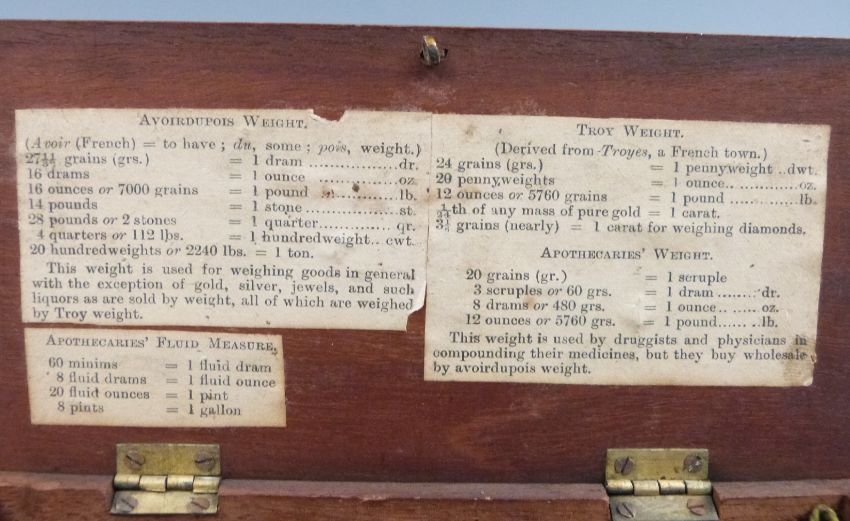 AVOIRDUPOIS WEIGHT.
(Avoir (French) = to have; du, some; pois, weight.)
27 11/32 grains (grs.) = 1 dram ..................dr.
16 drams = 1 ounce .................oz.
16 ounces or 7000 grains = 1 pound ..................lb.
14 pounds = 1 stone..................st.
28 pounds or 2 stones = 1 quarter...............qr.
4 quarters or 112 lbs. = 1 hundredweight.. cwt.
20 hundredweights or 2240 lbs. = 1 ton.
This weight is used for weighing goods in general
with the exception of gold, silver, jewels, and such
liquors as are sold by weight, all of which are weighed
by Troy weight.
APOTHECARIES' FLUID MEASURE.
60 minims = 1 fluid dram
8 fluid drams = 1 fluid ounce
20 fluid ounces = 1 pint
8 pints = 1 gallon
TROY WEIGHT.
(Derived from Troyes, a French town.)
24 grains (grs.) = 1 pennyweight ..dwt.
20 pennyweights = 1 ounce.. .............oz.
12 ounces or 5760 grains = 1 pound ...............lb.
1/24th of any mass of pure gold = 1 carat.
grains (nearly) = 1 carat for weighing diamonds.
APOTHECARIES' WEIGHT.
20 grains (gr.) = 1 scruple
3 scruples or 60 grs. = 1 dram ........dr.
8 drams or 480 grs. = 1 ounce.. .......oz.
12 ounces or 5760 grs. = 1 pound...... ..lb.
This weight is used by druggists and physicians in
compounding their medicines, but they buy wholesale
by avoirdupois weight.